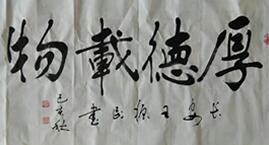 厚德載物
長安王振民書
己亥秋